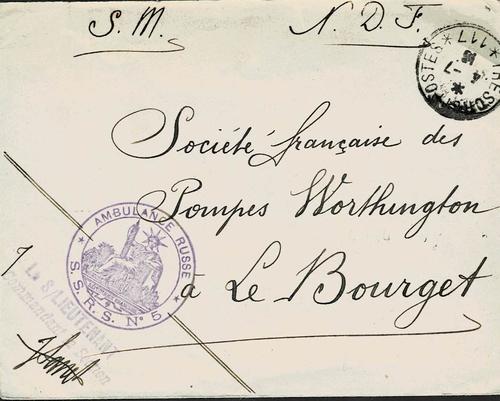 S. M. N. D. F.
TRESOR ET POSTES
* 117 *
4 - 7
Société française des
Pompes Worthington
à Le Bourget
* AMBULANCE RUSSE *
S. S. R. S. Nº 5
Le S/LIEUTENANT
Commandant la Section